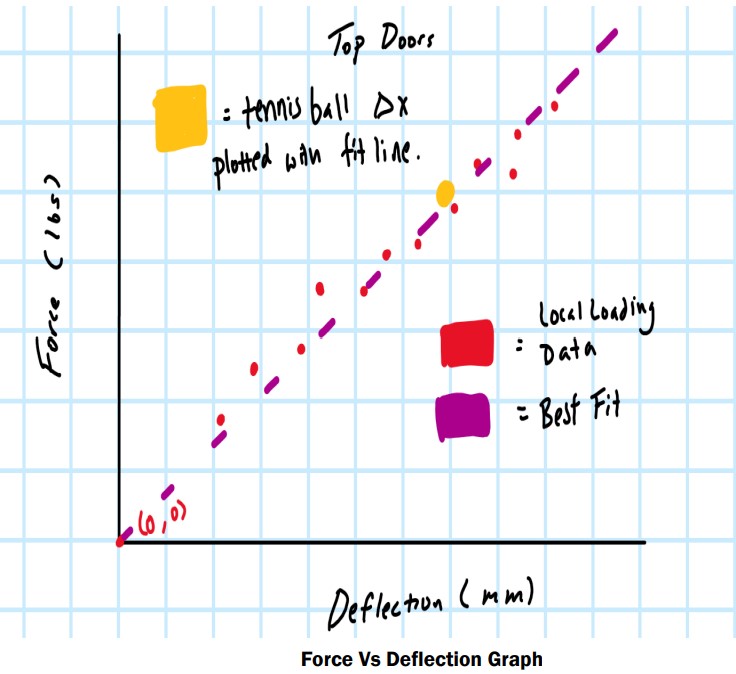 Top Doors
= tennis ball Δx
plotted with fit line.
Force (lbs)
Local Loading
= Data
= Best Fit
(0,0)
Deflection (mm)
Force Vs Deflection Graph